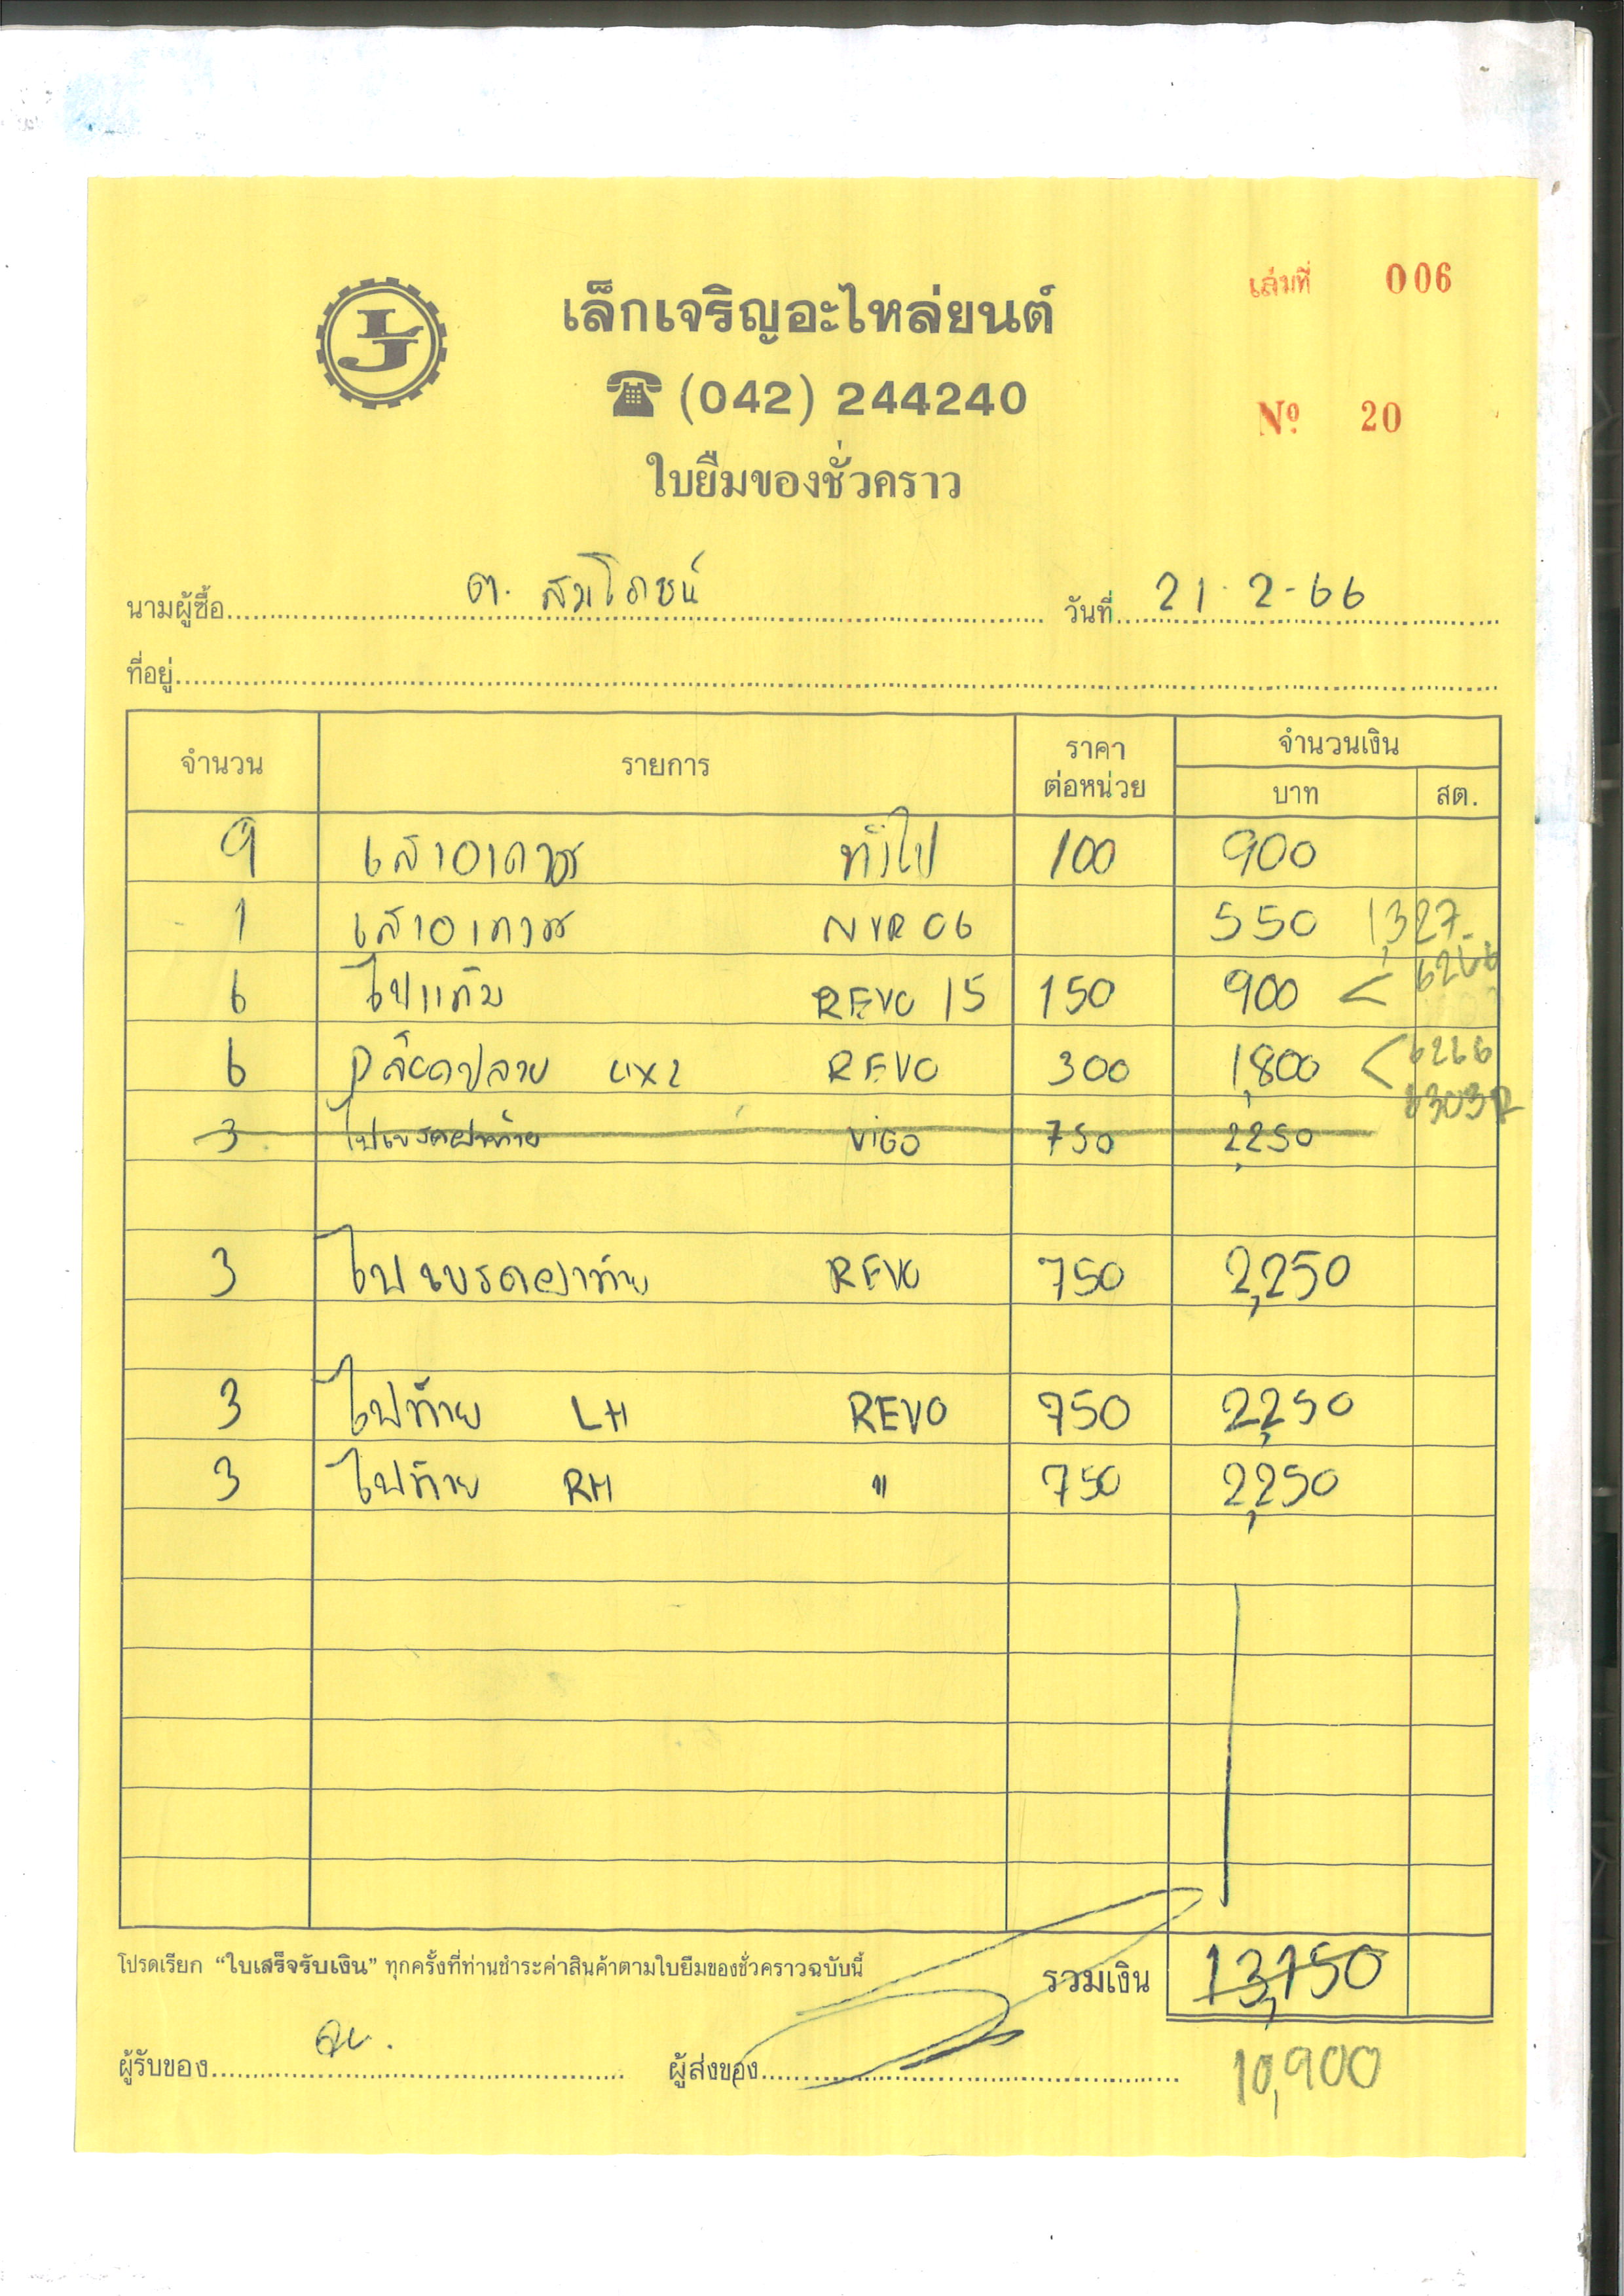 เล่มที่ 006
เล็กเจริญอะไหล่ยนต์
(042) 244240
Nº 20
ใบยืมของชั่วคราว
นามผู้ซื้อ ต. สมโภชน์ วันที่ 21-2-66
ที่อยู่
จำนวน รายการ ราคาต่อหน่วย จำนวนเงิน
บาท สต.
9 เสาอากาศ ทั่วไป 100 900
1 เสาอากาศ NVR 06 550 1,327
6 ไฟแก้ม REVO 15 150 900 < 6266
6 4x2 REVO 300 1,800 < 6266
3 ไฟเบรคฝาท้าย VIGO 750 2,250
3 ไฟเบรคฝาท้าย REVO 750 2,250
3 ไฟท้าย LH REVO 750 2,250
3 ไฟท้าย RH " 750 2,250
โปรดเรียก “ใบเสร็จรับเงิน” ทุกครั้งที่ท่านชำระค่าสินค้าตามใบยืมของชั่วคราวฉบับนี้
รวมเงิน 13,150
ผู้รับของ ผู้ส่งของ 10,900